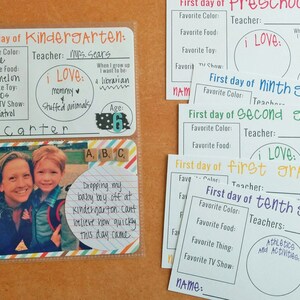 day of Kindergarten:
Color:
Teacher: Mrs. Sears
Food:
I love:
mommy
&
stuffed animals
When I grow up
I want to be:
a librarian
Toy:
TV Show:
Age:
6
Carter
A, B, C,
Dropping my
baby boy off at
kindergarten. Can't
believe how quickly
this day came.
First day of preschool
Favorite Color:
Favorite Food:
I LOVE:
Favorite Toy:
NAME
First day of ninth
Favorite Color:
Teachers:
First day of second g
Favorite Color:
Teacher:
Favorite Food:
I love:
First day of first gr
Favorite Color:
Teacher:
NAME:
First day of tenth
Favorite Color:
Teachers:
Favorite Food:
Favorite Thing:
Favorite TV Show:
Athletics
and
Activities:
NAME: